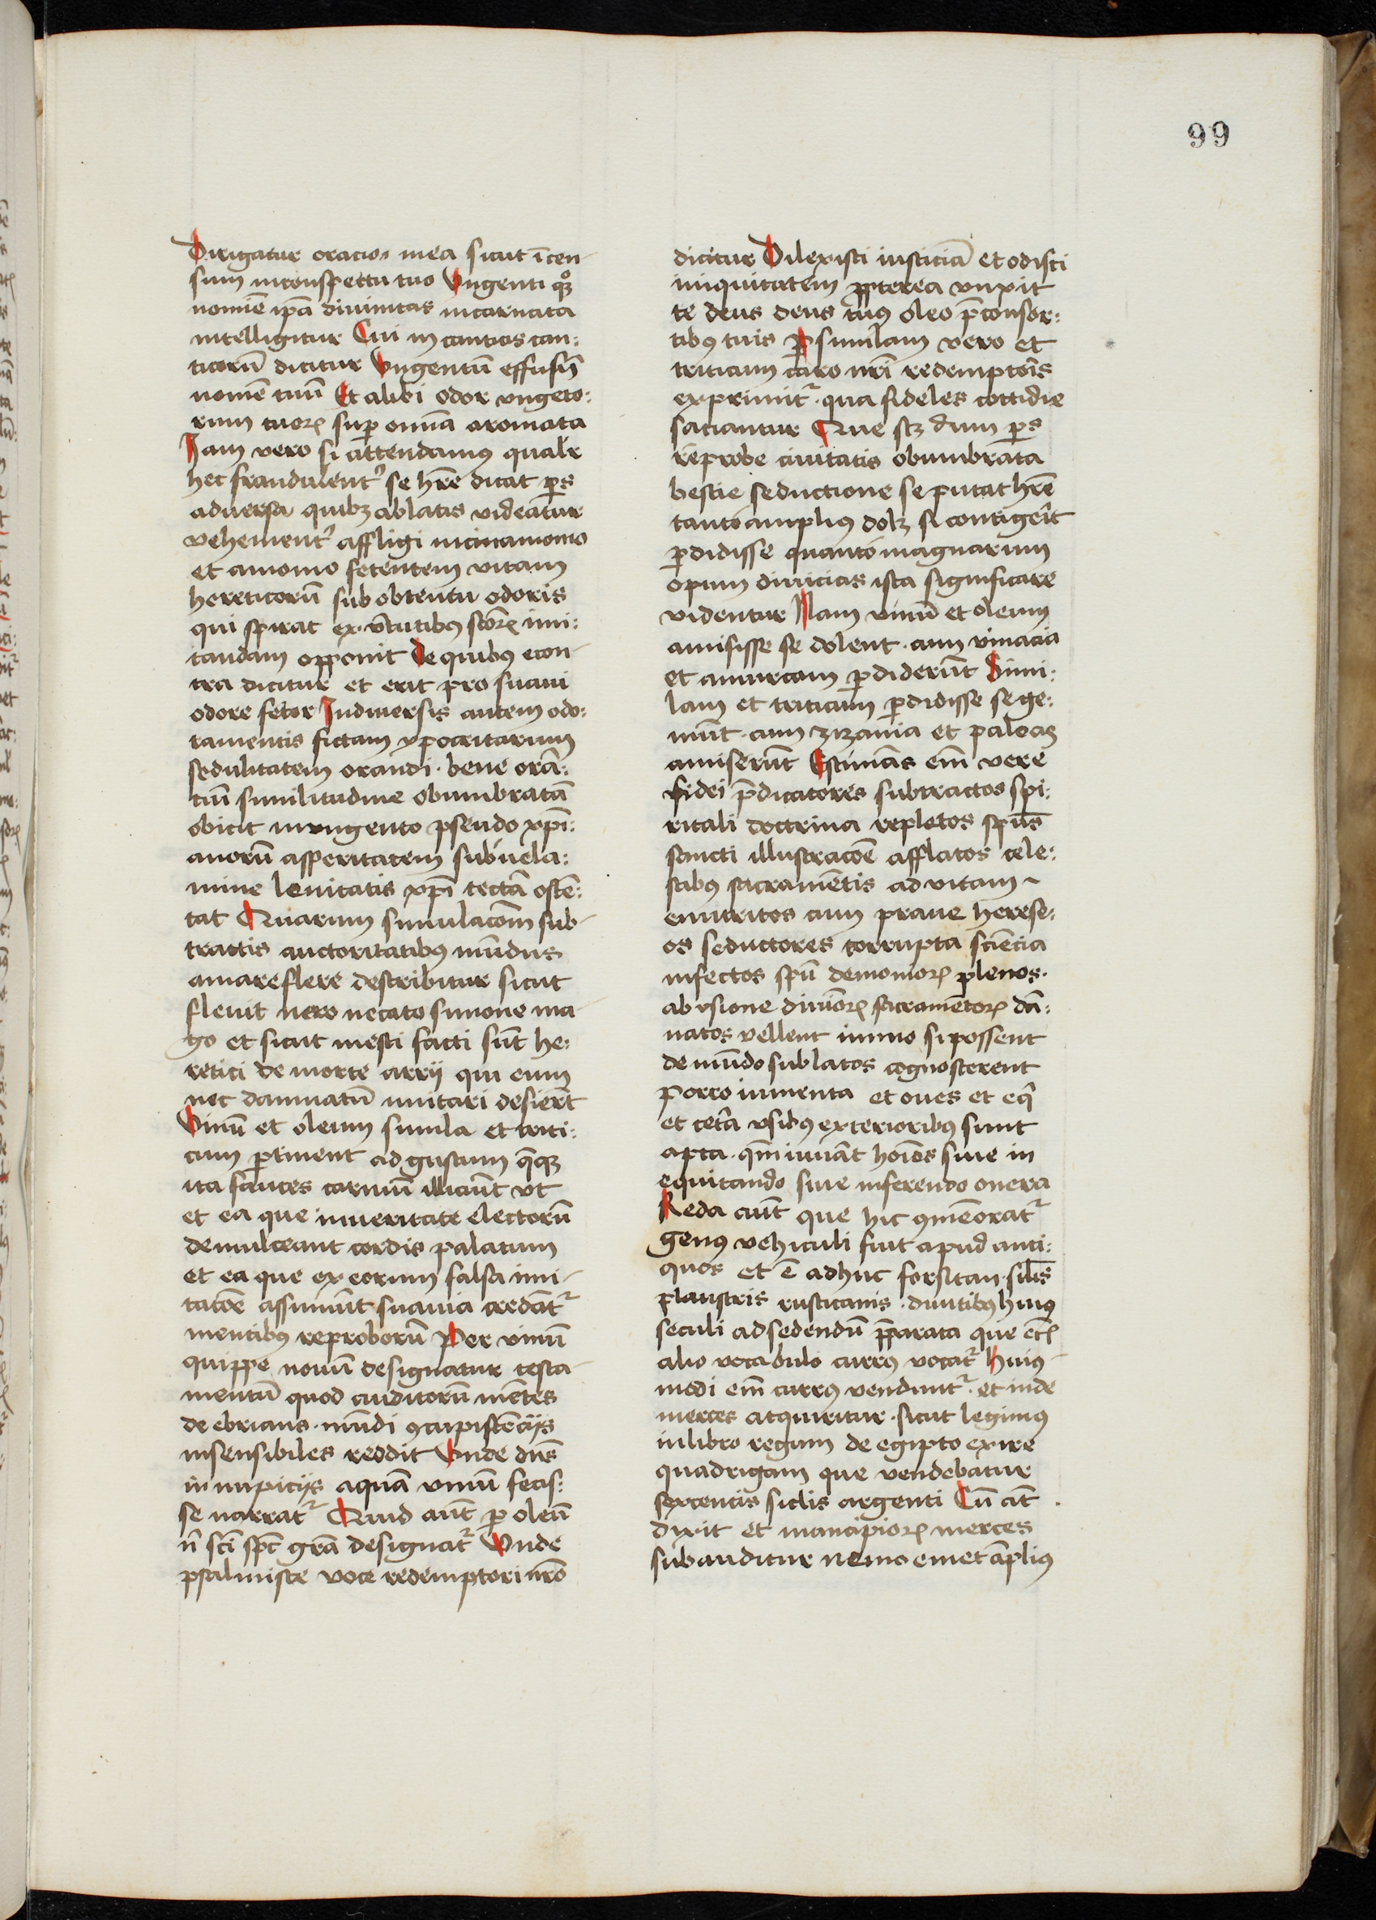 99
Dirigatur oracio mea sicut īcen-
sum inconspectu tuo Vngenti qͦꝫ
nomīe ip̄a diuinitas incarnata
intelligitur Cui in canticis can:
ticorū dicitur Vngentū effusū
nomē tuū Et alibi odor vngēto:
rum tuoꝝ sup̄ omīa aromata
Iam vero si attendamꝰ qualr̄
hec fraudulent᷑ se hr̄e dicat ꝑs
aduersa quibꝫ ablatis videātur
vehement᷑ affligi incinamomo
et amomo fetentem vitam
hereticorū sub obtentu odoris
qui spirat ex v̄tutibꝰ sc̄oꝝ imi:
tandam opponit De quibꝰ econ-
tra dicitur et erit pro suaui
odore fetor Indiuersis autem odo:
ramentis fictam ypocritarum
sedulitatem orandi · bene orā:
tiū similitudine obumbratā
obicit invngento pseudo xp̄i:
anorū asperitatem subuela:
mine lenitatis xp̄i tectā ostē:
tat Quarum simulacōm sub-
tractis auctoritatibꝰ mūdus
amare flere describitur sicut
fleuit nero necato simone ma-
go et sicut mesti facti sūt he:
retici de morte arrij qui eum
nec damnatū imitari desierūt
Vinū et oleum simila et triti:
cum ꝑtinent ad gustum q̄ꝫ
ita fauces carniū illiciūt vt
et ea que inueritate electorū
demulceant cordis palatum
et ea que ex eorum falsa imi-
tacōe assumūt suauia credāt᷑
mentibꝰ reproborū Per vinū
quippe nouū designatur testa-
mentū quod auditorū mētes
de ebrians · mūdi ꝯcupiscēcijs
insensibiles reddit Vnde dn̄s
in nupcijs aquā vinū fecis:
se narrat᷑ Quid aūt ꝑ oleū
n̄ sc̄i sp̄c gr̄a designat᷑ Vnde
psalmiste voce redemptori nr̄o
dicitur Dilexisti iusticiā et odisti
iniquitatem ꝓpterea vnxit
te deus deus tuꝰ oleo p̄ consor:
tibꝰ tuis Per similam vero et
triticum caro nr̄i redemptoīs
exprimit᷑ · qua fideles cottidie
saciantur Que scꝫ dum ꝑs
reprobe ciuitatis obumbrata
bestie seductione se putat hr̄e
tanto ampliꝰ dolꝫ si contigeīt
ꝑdidisse quanto magnarum
opum diuicias ista significare
videntur Nam vinū et oleum
amisisse se dolent · cum vinacia
et amurcam ꝑdiderūt Simi:
lam et triticum ꝑdidisse se ge:
mūt · cum zizania et paleas
amiserūt Estimās em̄ vere
fidei p̄dicatores subtractos spi:
ritali doctrina repletos sp̄us
sancti illustracōe afflatos cele:
stibꝰ sacramētis ad vitam
enutritos cum praue herese:
os seductores corrupta sciēcia
infectos sp̄u demonioꝝ plenos ·
ab vsione diuinoꝝ sacramētoꝝ dā:
natos vellent immo si possent
de mūdo sublatos cognoscerent
Porro iumenta et oues et eq̄
et cetā vsibꝰ exterioribꝰ sunt
apta · qm̄ iuuāt hoīes siue in
equitando siue inferendo onera
Reda aūt que hic ꝯmēorat᷑
genꝰ vehiculi fuit apud anti:
quos et ē adhuc forsitan · sil̄is
plaustris rusticanis · diuitibꝰ huiꝰ
seculi ad sedendū p̄parata que
alio vocabulo currꝰ vocat᷑ Huiꝰ-
modi em̄ currꝰ vendunt᷑ · et inde
merces acquiritur · sicut legimꝰ
inlibro regum de egipto exire
quadrigam que vendebatur
sexcentis siclis argenti Cū āt
dixit et mancipioꝝ merces
subauditur nemo emet āpliꝰ